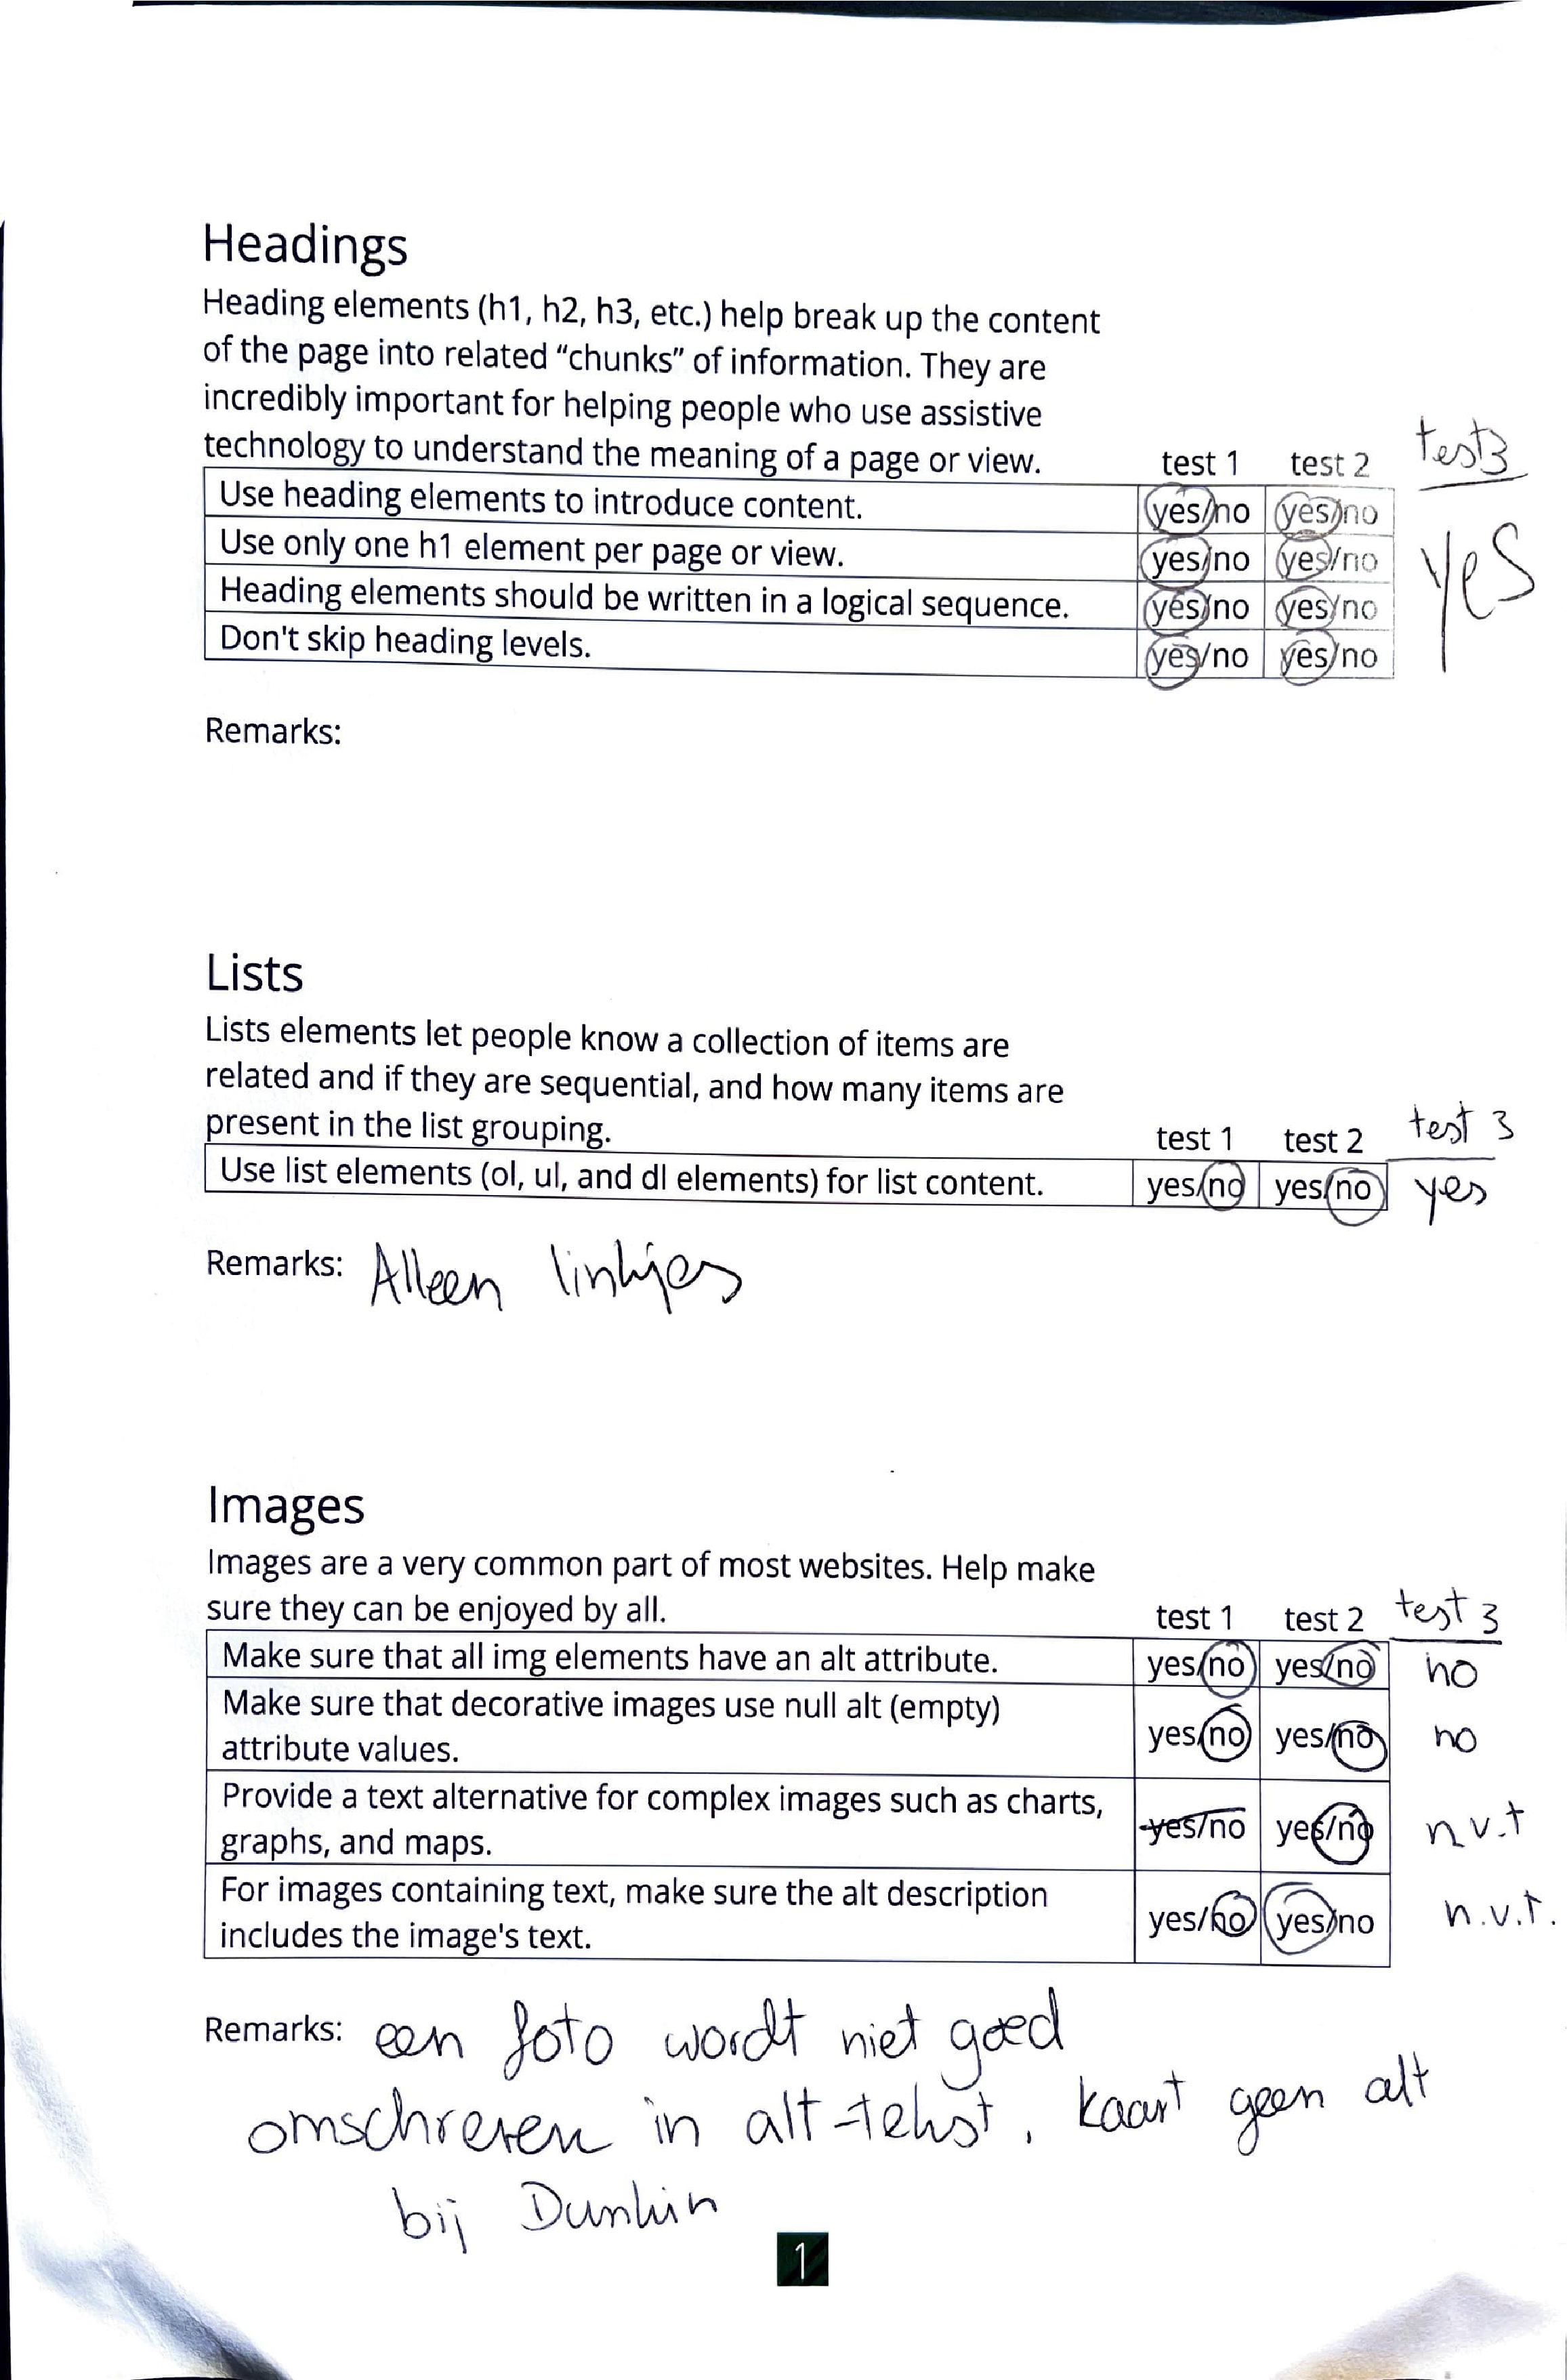 Headings
Heading elements (h1, h2, h3, etc.) help break up the content
of the page into related “chunks” of information. They are
incredibly important for helping people who use assistive
technology to understand the meaning of a page or view. test 1 test 2 test3
Use heading elements to introduce content. yes/no yes/no
Use only one h1 element per page or view. yes/no yes/no yes
Heading elements should be written in a logical sequence. yes/no yes/no
Don't skip heading levels. yes/no yes/no
Remarks:
Lists
Lists elements let people know a collection of items are
related and if they are sequential, and how many items are
present in the list grouping. test 1 test 2 test 3
Use list elements (ol, ul, and dl elements) for list content. yes/no yes/no yes
Remarks: Alleen linkjes
Images
Images are a very common part of most websites. Help make
sure they can be enjoyed by all. test 1 test 2 test 3
Make sure that all img elements have an alt attribute. yes/no yes/no no
Make sure that decorative images use null alt (empty)
attribute values. yes/no yes/no no
Provide a text alternative for complex images such as charts,
graphs, and maps. yes/no yes/no n.v.t
For images containing text, make sure the alt description
includes the image's text. yes/no yes/no n.v.t.
Remarks: een foto wordt niet goed
omschreven in alt-tekst, kaart geen alt
bij Dunkin
1